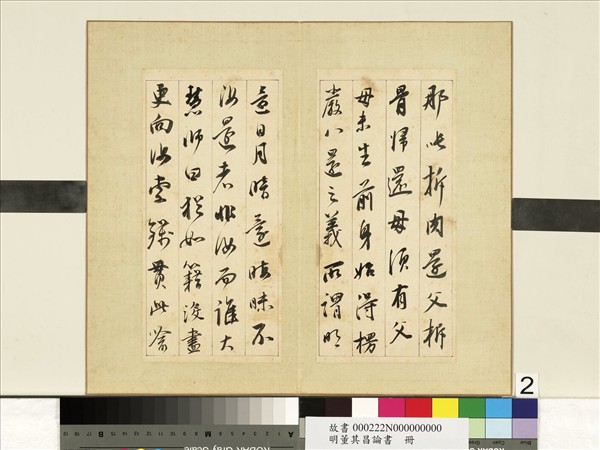 那吒析肉還父析
骨歸還母須有父
母未生前身始得楞
嚴八還之義所謂明
還日月暗還晦昧不
汝還者非汝而誰大
慧師曰猶如籍沒盡
更向汝索錢貫此喻
2
故書 000222N000000000
明董其昌論書 冊